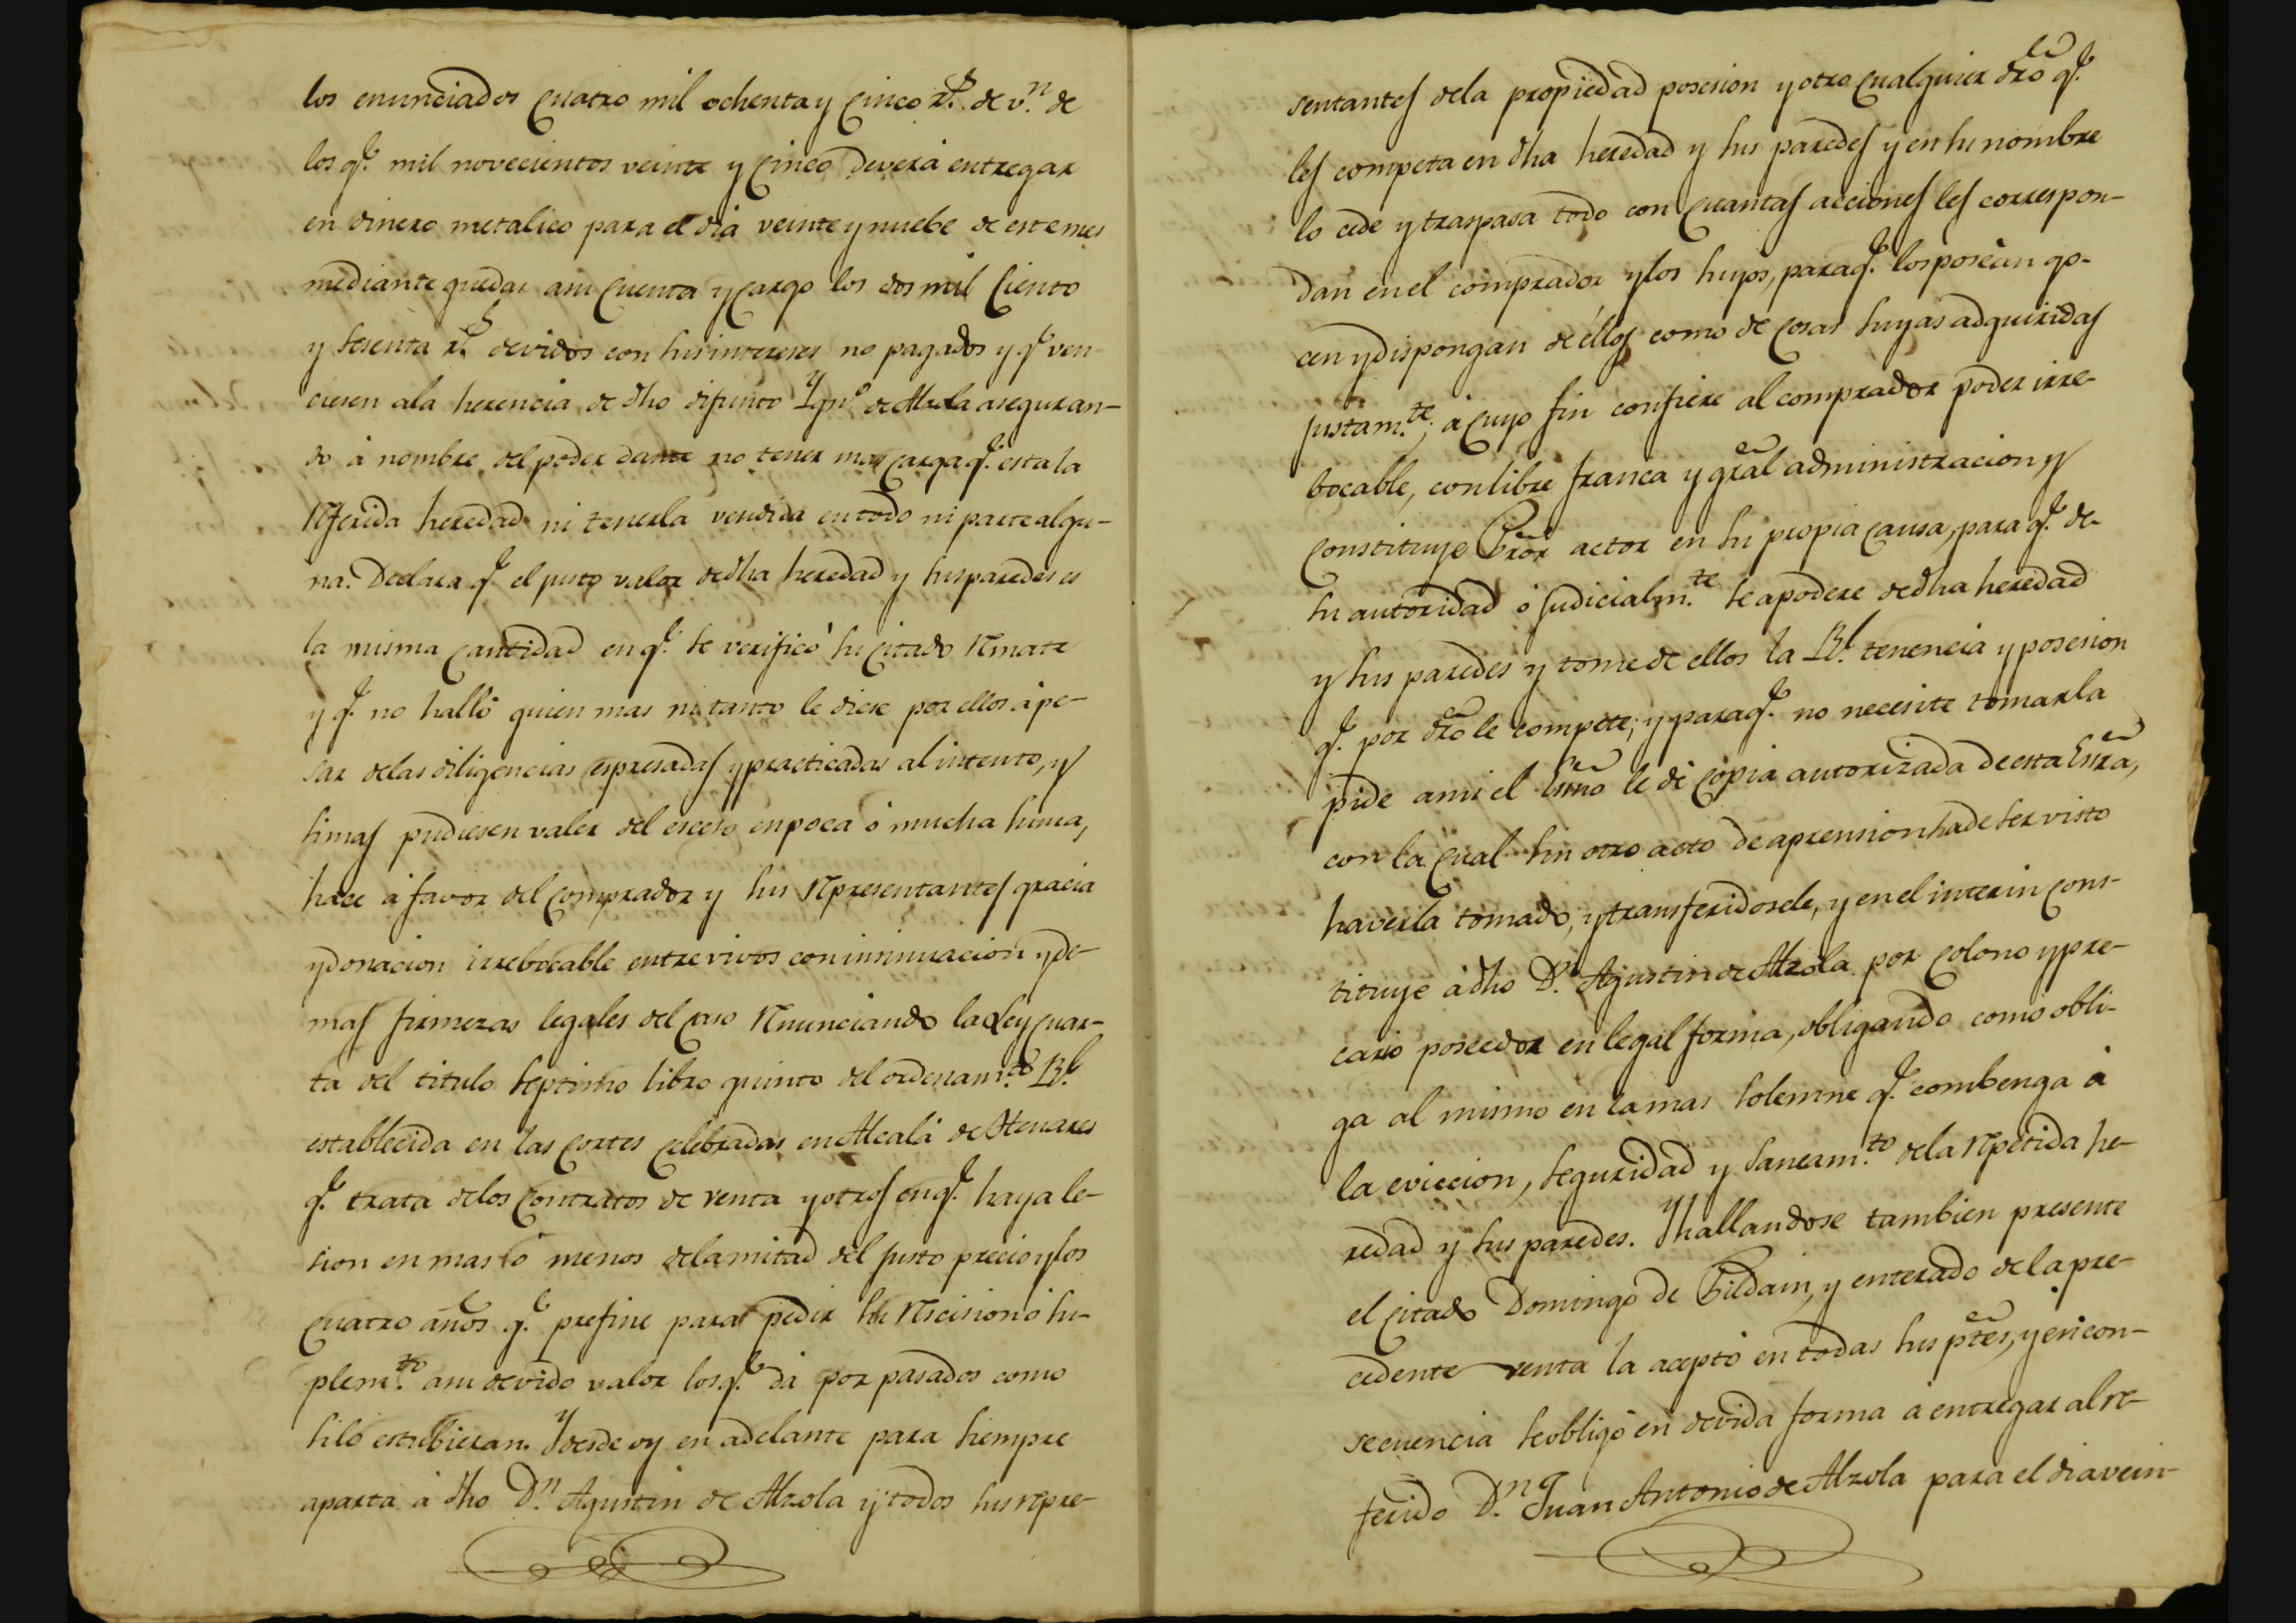 los enunciados cuatro mil ochenta y cinco r.s de v.n de
los q.e mil novecientos veinte y cinco deverá entregar
en dinero metalico para el dia veinte y nuebe de este mes
mediante quedar a su cuenta y cargo los dos mil ciento
y sesenta r.s devidos con sus intereses no pagados y q.e ven-
ciesen a la herencia de dho difunto Ygn.o de Alzola aseguran-
do á nombre del poder dante no tener mas carga q.e esta la
referida heredad ni tenerla vendida en todo ni parte algu-
na. Declara q.e el justo valor de dha heredad y sus paredes es
la misma cantidad en q.e se verificó su citado remate
y q.e no halló quien mas ni tanto le diese por ellos á pe-
sar de las diligencias espresadas y practicadas al intento, y
si mas pudiesen valer del esceso en poca ó mucha suma,
hace á favor del comprador y sus representantes gracia
y donacion irrebocable entre vivos con insinuacion y de-
mas firmezas legales del caso renunciando la Ley cuar-
ta del titulo septimo libro quinto del ordenam.to R.l
establecida en las cortes celebradas en Alcalá de Henares
q.e trata de los contratos de venta y otros en q.e haya le-
sion en mas ó menos de la mitad del justo precio y los
cuatro años q.e prefine para pedir su rescision ó su-
plem.to a su devido valor los q.e dá por pasados como
si lo estubieran. Y desde oy en adelante para siempre
aparta á dho D.n Agustin de Alzola y todos sus repre-
sentantes de la propiedad posesion y otro cualquier dro q.e
les competa en dha heredad y sus paredes y en su nombre
lo cede y traspasa todo con cuantas acciones les correspon-
dan en el comprador y los suyos, para q.e los poséan go-
cen y dispongan de éllos como de cosas suyas adquiridas
justam.te; á cuyo fin confiere al comprador poder irre-
bocable, con libre franca y gral administracion y
constituye Pror actor en su propia causa, para q.e de
su autoridad ó judicialm.te se apodere de dha heredad
y sus paredes y tome de ellos la R.l tenencia y posesion
q.e por dro le compete; y para q.e no necesite tomarla
pide a mi el Esno le dé copia autorizada de esta Esra,
con la cual sin otro acto de aprension ha de ser visto
haverla tomado, y transferidosele, y en el interin cons-
tituye á dho D.n Agustin de Alzola por colono y pre-
cario poseedor en legal forma, obligando como obli-
ga al mismo en la mas solemne q.e combenga á
la eviccion, seguridad y saneam.to de la repetida he-
redad y sus paredes. Y hallandose tambien presente
el citado Domingo de Gildain, y enterado de la pre-
cedente venta la aceptó en todas sus ptes, y en con-
secuencia se obligó en devida forma á entregar al re-
ferido D.n Juan Antonio de Alzola para el dia vein-